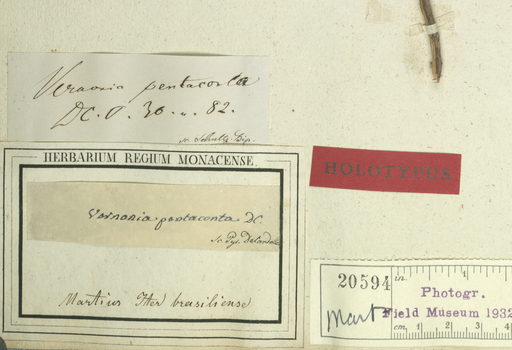 Vernonia pentaconta
DC. P. 30. n. 82.
Schultz Bip.
HERBARIUM REGIUM MONACENSE.
HOLOTYPUS
Vernonia pentaconta DC.
Martius Iter brasiliense
20594
in. 1
Photogr.
Mart
Field Museum 1932
cm. 1 2 3 4